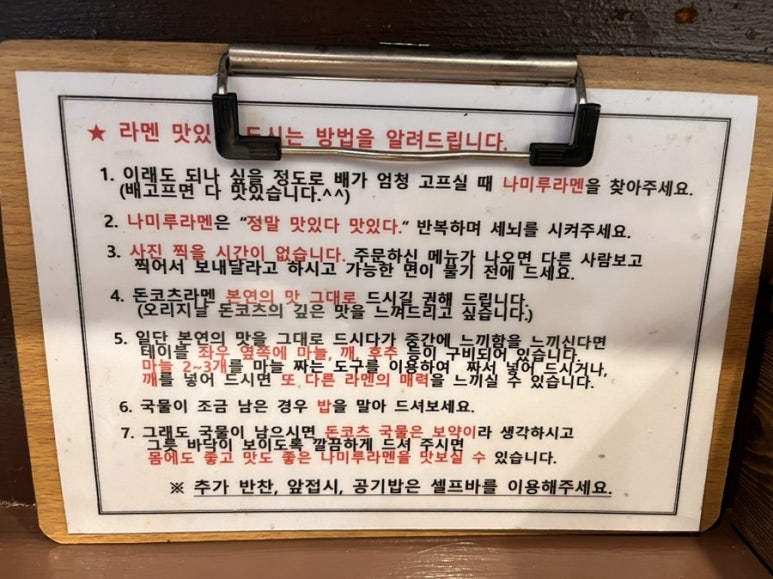 ★ 라멘 맛있 드시는 방법을 알려드립니다.
1. 이래도 되나 싶을 정도로 배가 엄청 고프실 때 나미루라멘을 찾아주세요.
(배고프면 다 맛있습니다.^^)
2. 나미루라멘은 “정말 맛있다 맛있다.” 반복하며 세뇌를 시켜주세요.
3. 사진 찍을 시간이 없습니다. 주문하신 메뉴가 나오면 다른 사람보고
찍어서 보내달라고 하시고 가능한 면이 불기 전에 드세요.
4. 돈코츠라멘 본연의 맛 그대로 드시길 권해 드립니다.
(오리지날 돈코츠의 깊은 맛을 느껴드리고 싶습니다.)
5. 일단 본연의 맛을 그대로 드시다가 중간에 느끼함을 느끼신다면
테이블 좌우 옆쪽에 마늘, 깨, 후추 등이 구비되어 있습니다.
마늘 2~3개를 마늘 짜는 도구를 이용하여 짜서 넣어 드시거나,
깨를 넣어 드시면 또 다른 라멘의 매력을 느끼실 수 있습니다.
6. 국물이 조금 남은 경우 밥을 말아 드셔보세요.
7. 그래도 국물이 남으시면 돈코츠 국물은 보약이라 생각하시고
그릇 바닥이 보이도록 깔끔하게 드셔 주시면
몸에도 좋고 맛도 좋은 나미루라멘을 맛보실 수 있습니다.
※ 추가 반찬, 앞접시, 공기밥은 셀프바를 이용해주세요.